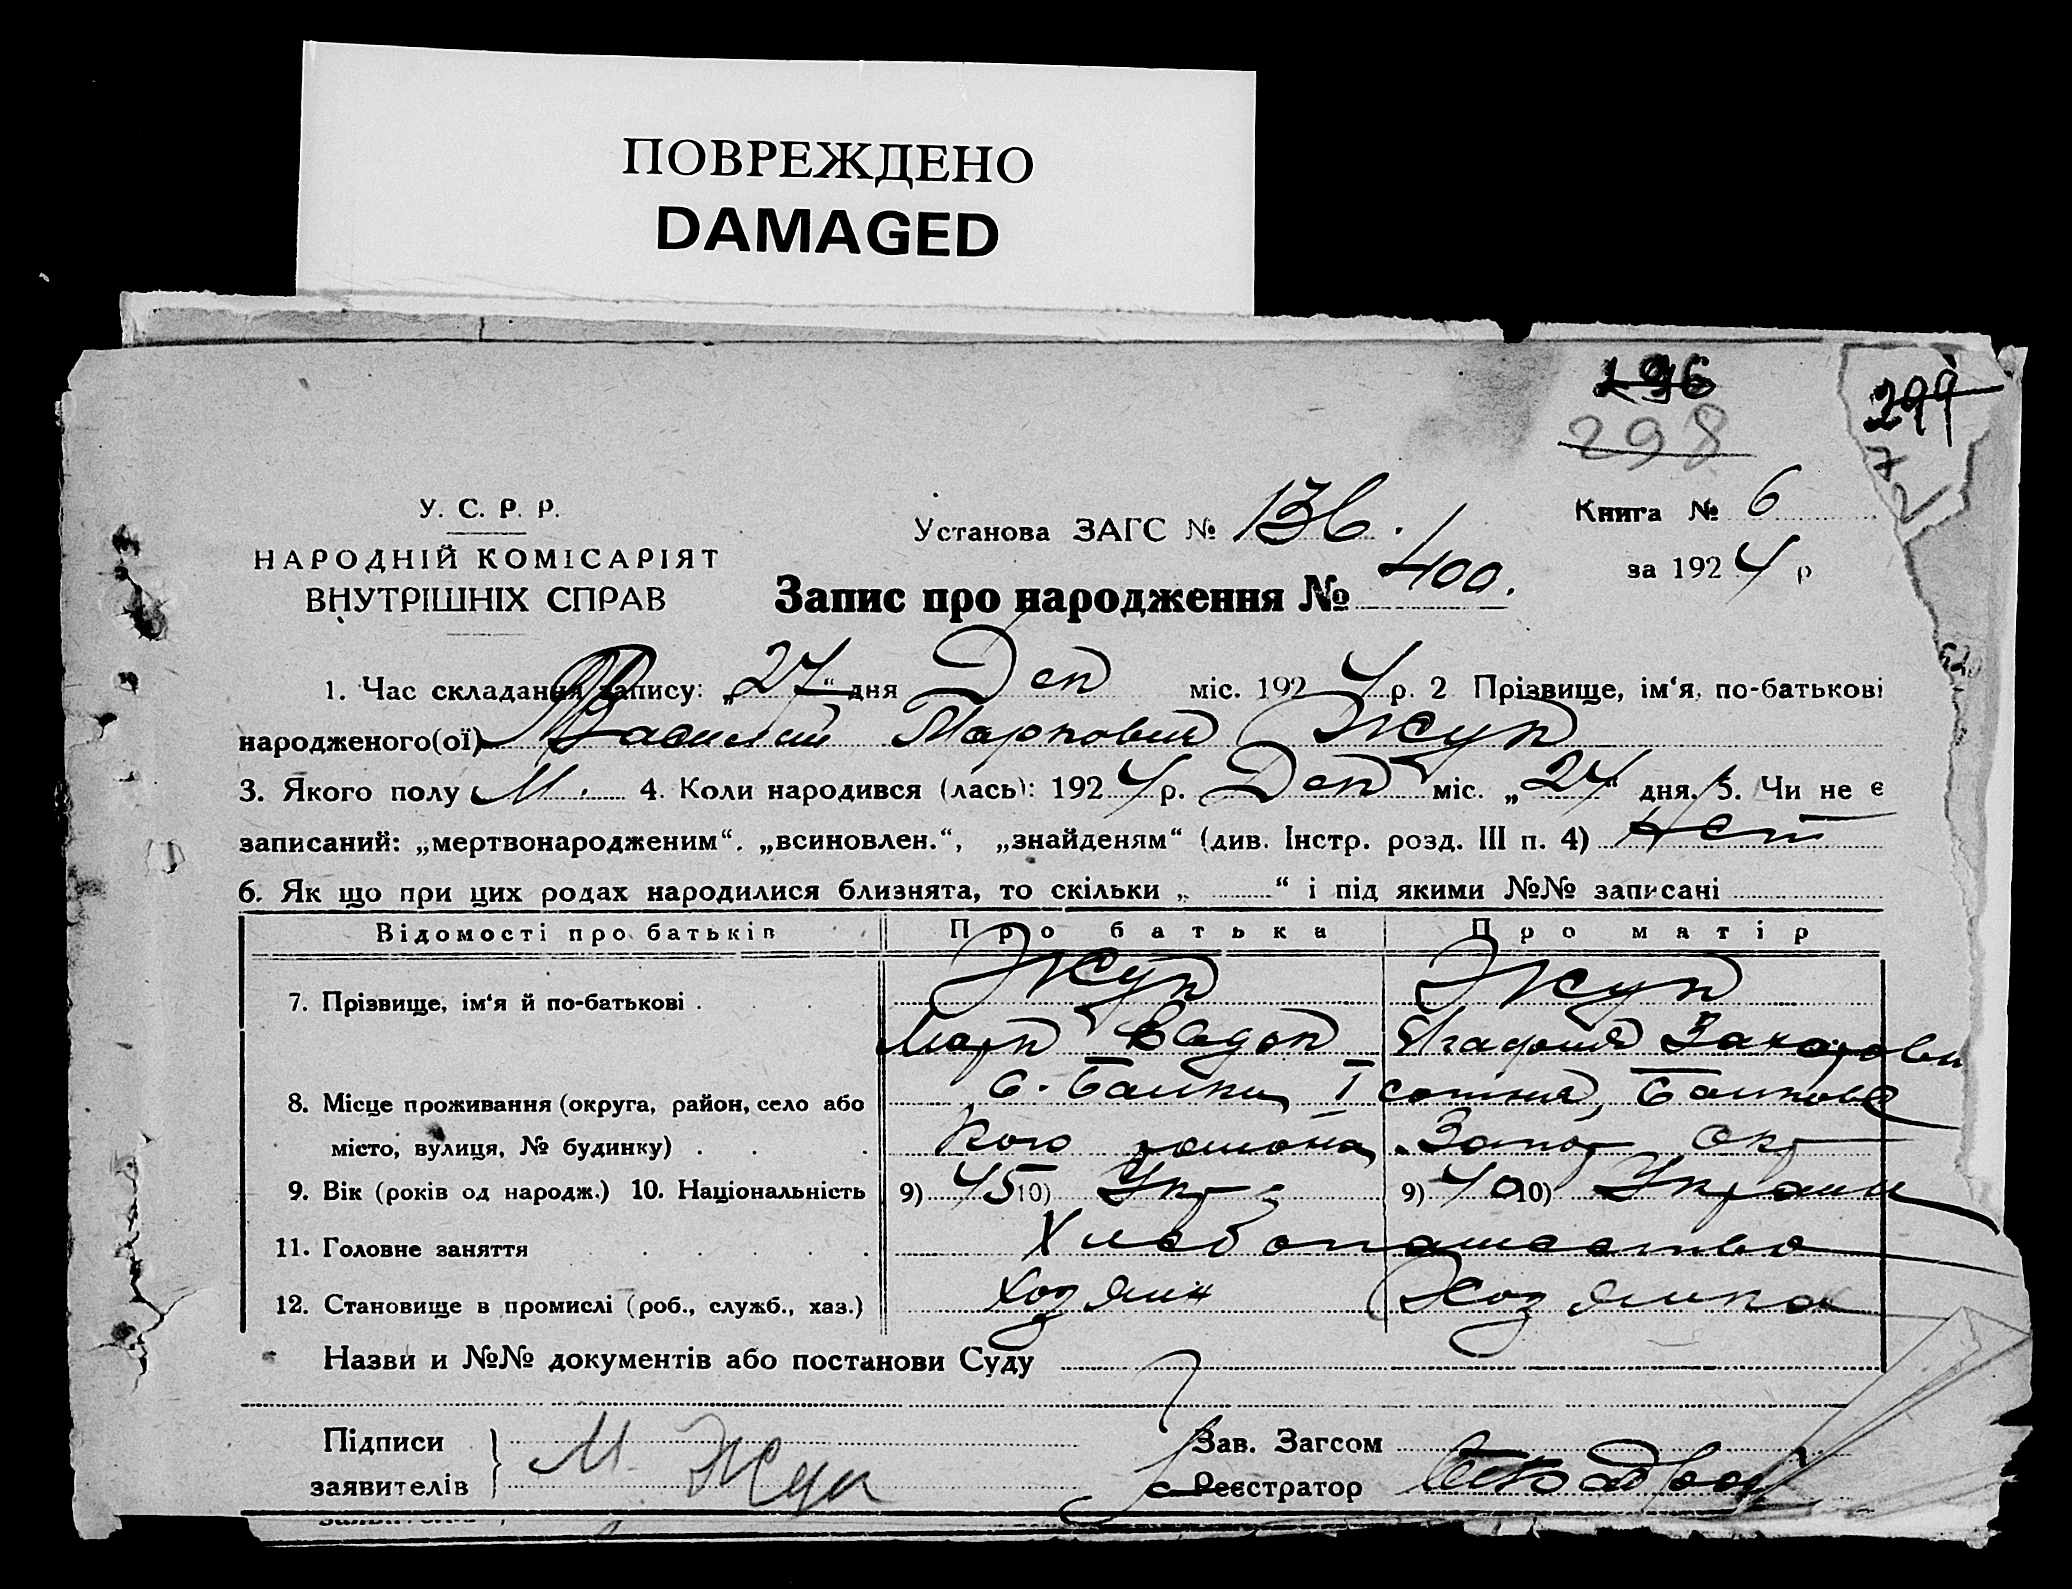 ПОВРЕЖДЕНО
DAMAGED
196
298
299
У. С. Р. Р.
НАРОДНІЙ КОМІСАРІЯТ
ВНУТРІШНІХ СПРАВ
Установа ЗАГС № 136.
Книга № 6
за 1924 р
Запис про народження № 400.
1. Час складання запису: „27“ дня Дек міс. 1924 р. 2 Прізвище, ім‘я, по-батькові
народженого(ої) Василий Маркович Жук
3. Якого полу М. 4. Коли народився (лась): 1924 р. Дек міс. „24“ дня. 5. Чи не є
записаний: „мертвонародженим“. „всиновлен.“, „знайденям“ (див. Інстр. розд. III п. 4) Нет
6. Як що при цих родах народилися близнята, то скільки „ “ і під якими №№ записані
Відомості про батьків Про батька Про матір
7. Прізвище, ім‘я й по-батькові . Жук Жук
Марк Агафия Захаров
8. Місце проживання (округа, район, село або с. Балки I сотня, Балков
місто, вулиця, № будинку) . ского района, Запор окр
9. Вік (років од народж.) 10. Національність 9) 45 10) Укр 9) 40 10) Украин
11. Головне заняття Хлебопашество
12. Становище в промислі (роб., служб., хаз.) Хозяин Хозяйка
Назви и №№ документів або постанови Суду
Підписи М. Жук Зав. Загсом
заявителів Реєстратор